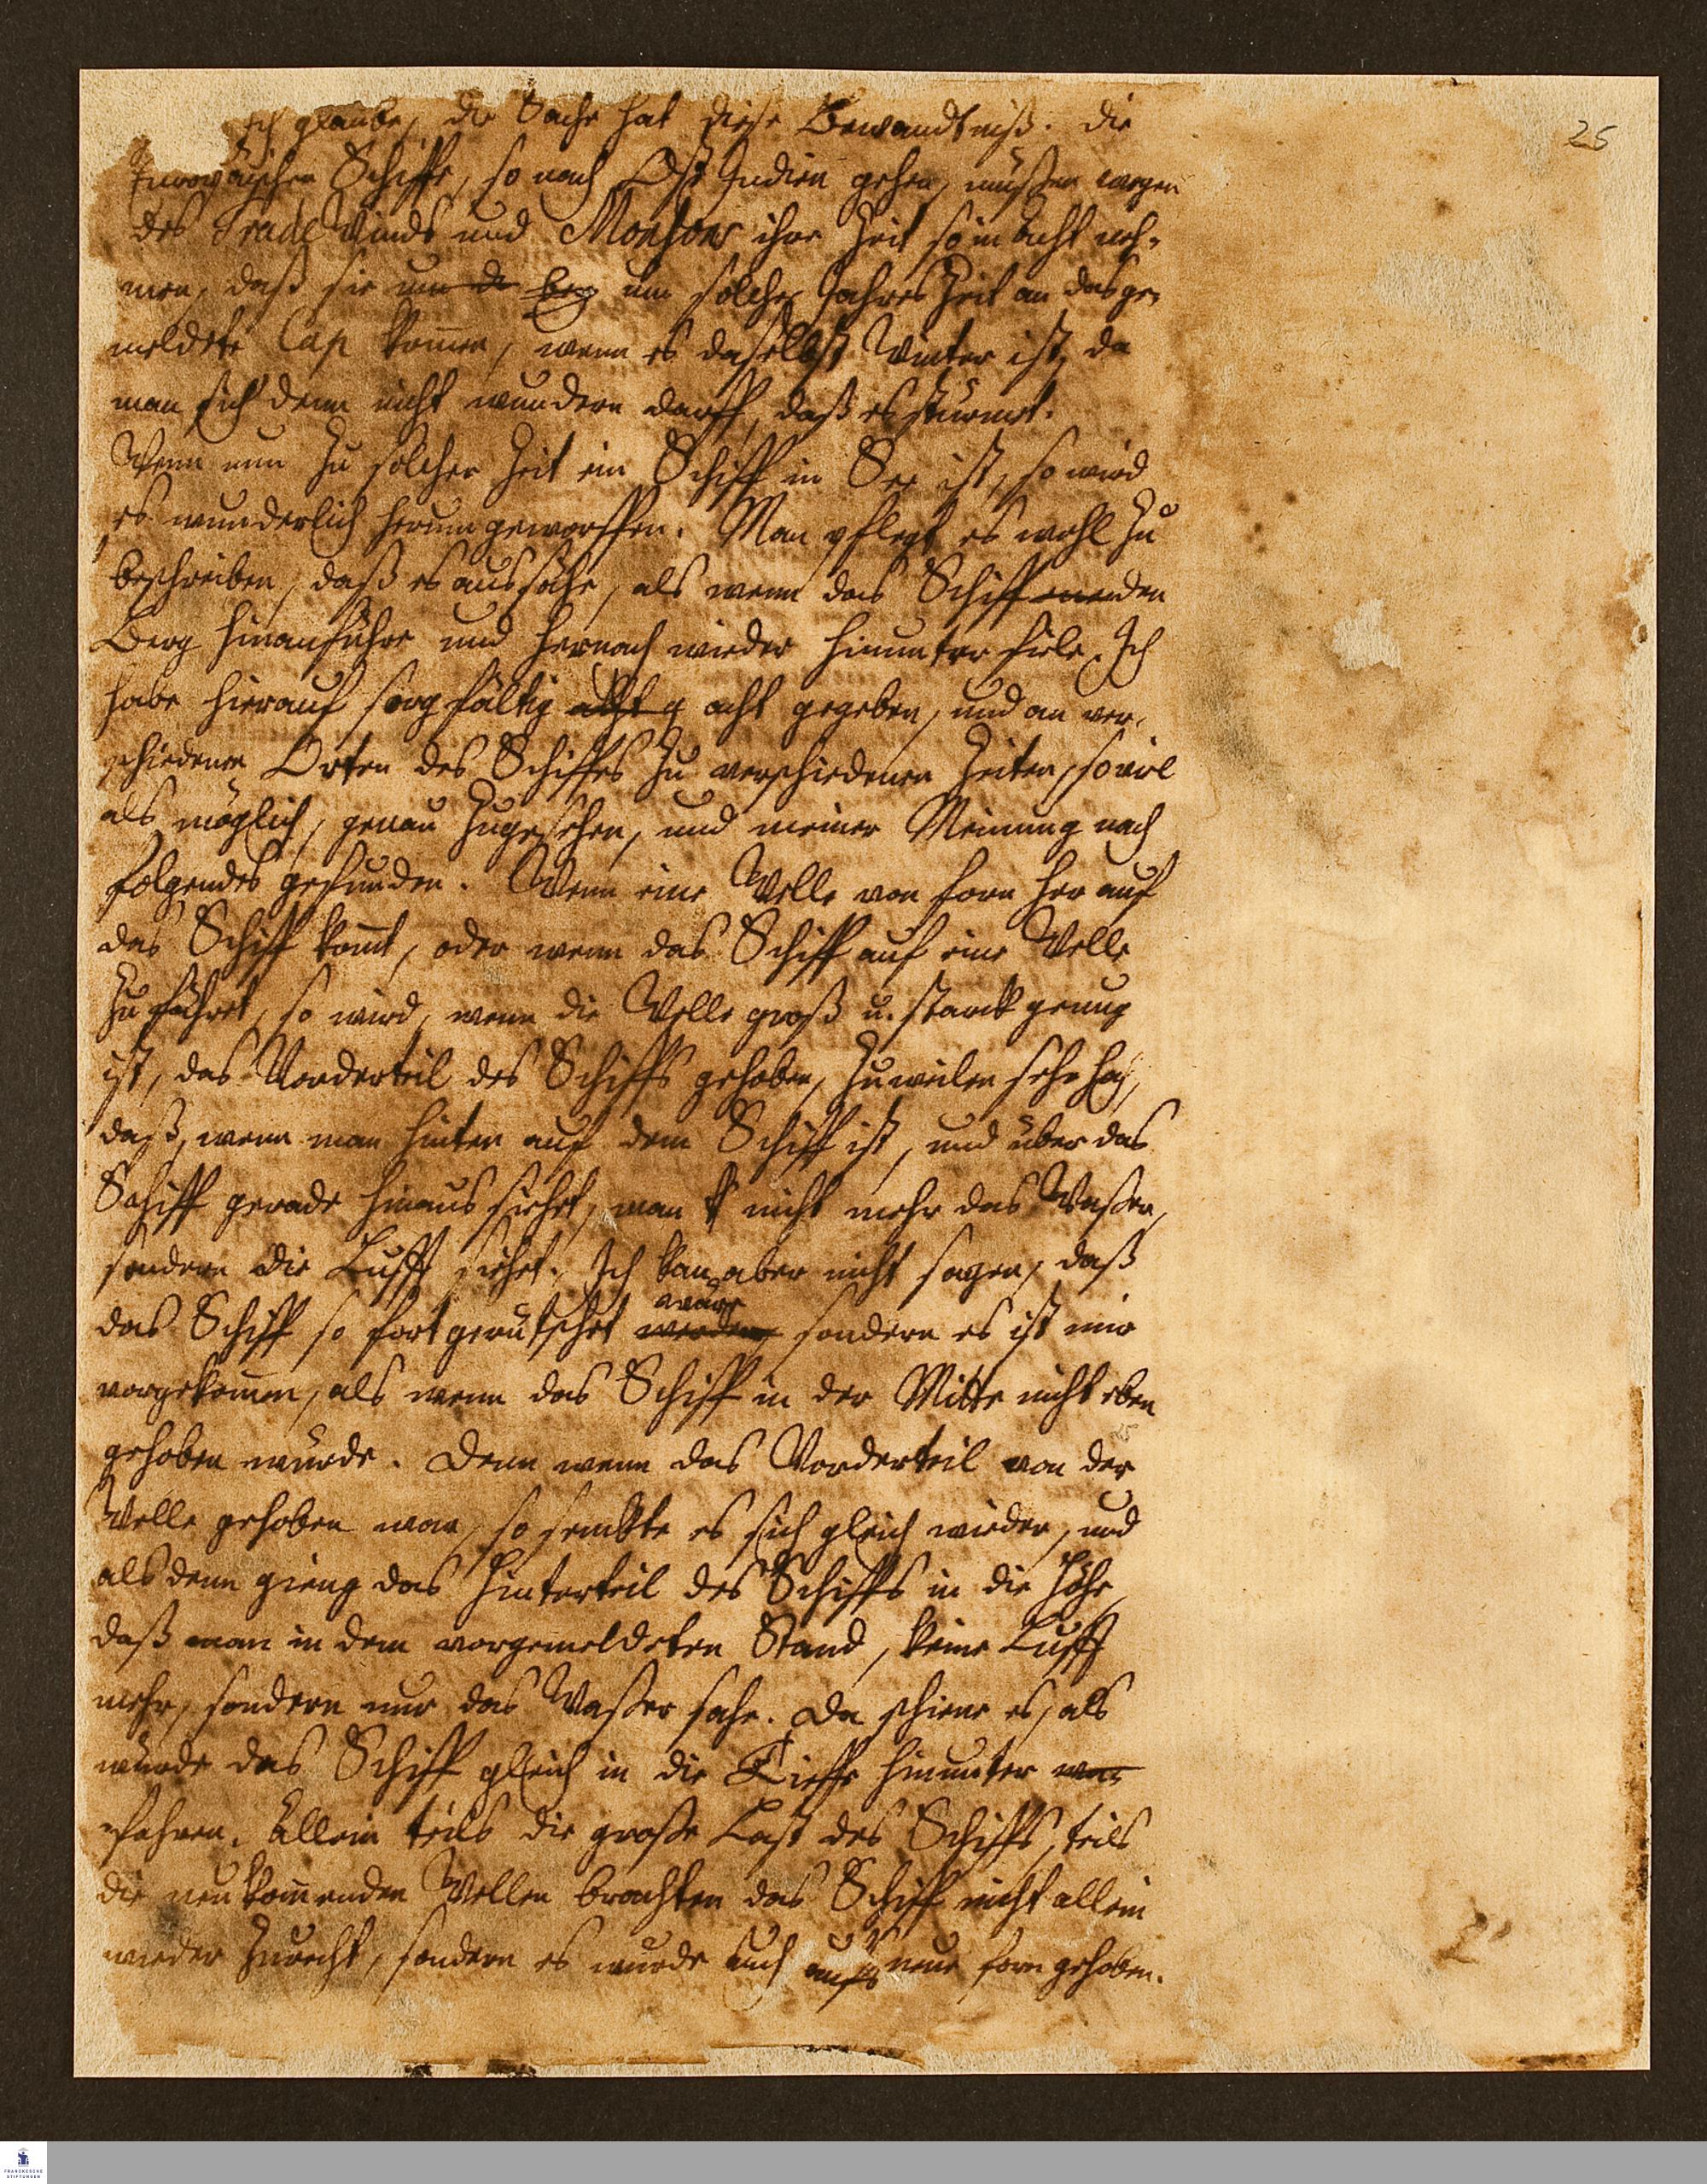 25
Ich glaube, die Sache hat diese Bewandtniß. Die
Europäischen Schiffe, so nach Ost Indien gehen, müßen wegen
des Trade Winds und Monsons ihre Zeit so in acht neh-
men, daß sie um de bey um solche Jahres Zeit an das ge-
meldete Cap kom̄en, wenn es daselbst Winter ist, da
man sich denn nicht wundern darff, daß es stürmet.
Wenn nun zu solcher Zeit ein Schiff in See ist, so wird
es wunderlich herum geworffen. Man pflegt es wohl zu
beschreiben, daß es aussähe, als wenn das Schiff einen den
Berg hinanführe und hernach wieder hinunter fiele. Ich
habe hierauf sorgfältig acht g acht gegeben, und an ver-
schiedenen Orten des Schiffes zu verschiedenen Zeiten, so viel
als möglich, genau zugesehen, und meiner Meinung nach
folgendes gefunden. Wenn eine Welle von forn her auf
das Schiff kom̄t, oder wenn das Schiff auf eine Welle
zu fähret, so wird, wenn die Welle groß u. starck genug
ist, das Vorderteil des Schiffs gehoben, zuweilen sehr hoch,
daß, wenn man hinten auf dem Schiff ist, und über das
Schiff gerade hinaus siehet, man nicht mehr das Waßer,
sondern die Lufft siehet. Ich kan aber nicht sagen, daß
das Schiff so fort gerutschet werden wäre sondern es ist mir
vorgekom̄en, als wenn das Schiff in der Mitte nicht eben
gehoben würde. Denn wenn das Vorderteil von der
Welle gehoben war, so senckte es sich gleich wieder, und
als denn gieng das Hinterteil des Schiffs in die Höhe,
daß man in dem vorgemeldeten Stand, keine Lufft
mehr, sondern nur das Waßer sahe. Da schiene es, als
würde das Schiff gleich in die Tieffe hinunter
fahren. Allein teils die große Last des Schiffs, teils
die neu kom̄enden Wellen brachten das Schiff nicht allein
wieder zurecht, sondern es wurde auch aufs neue forn gehoben.
FRANCKESCHE
STIFTUNGEN